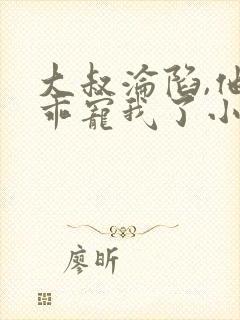 大叔淪陷,他
乖寵我了小
廖昕